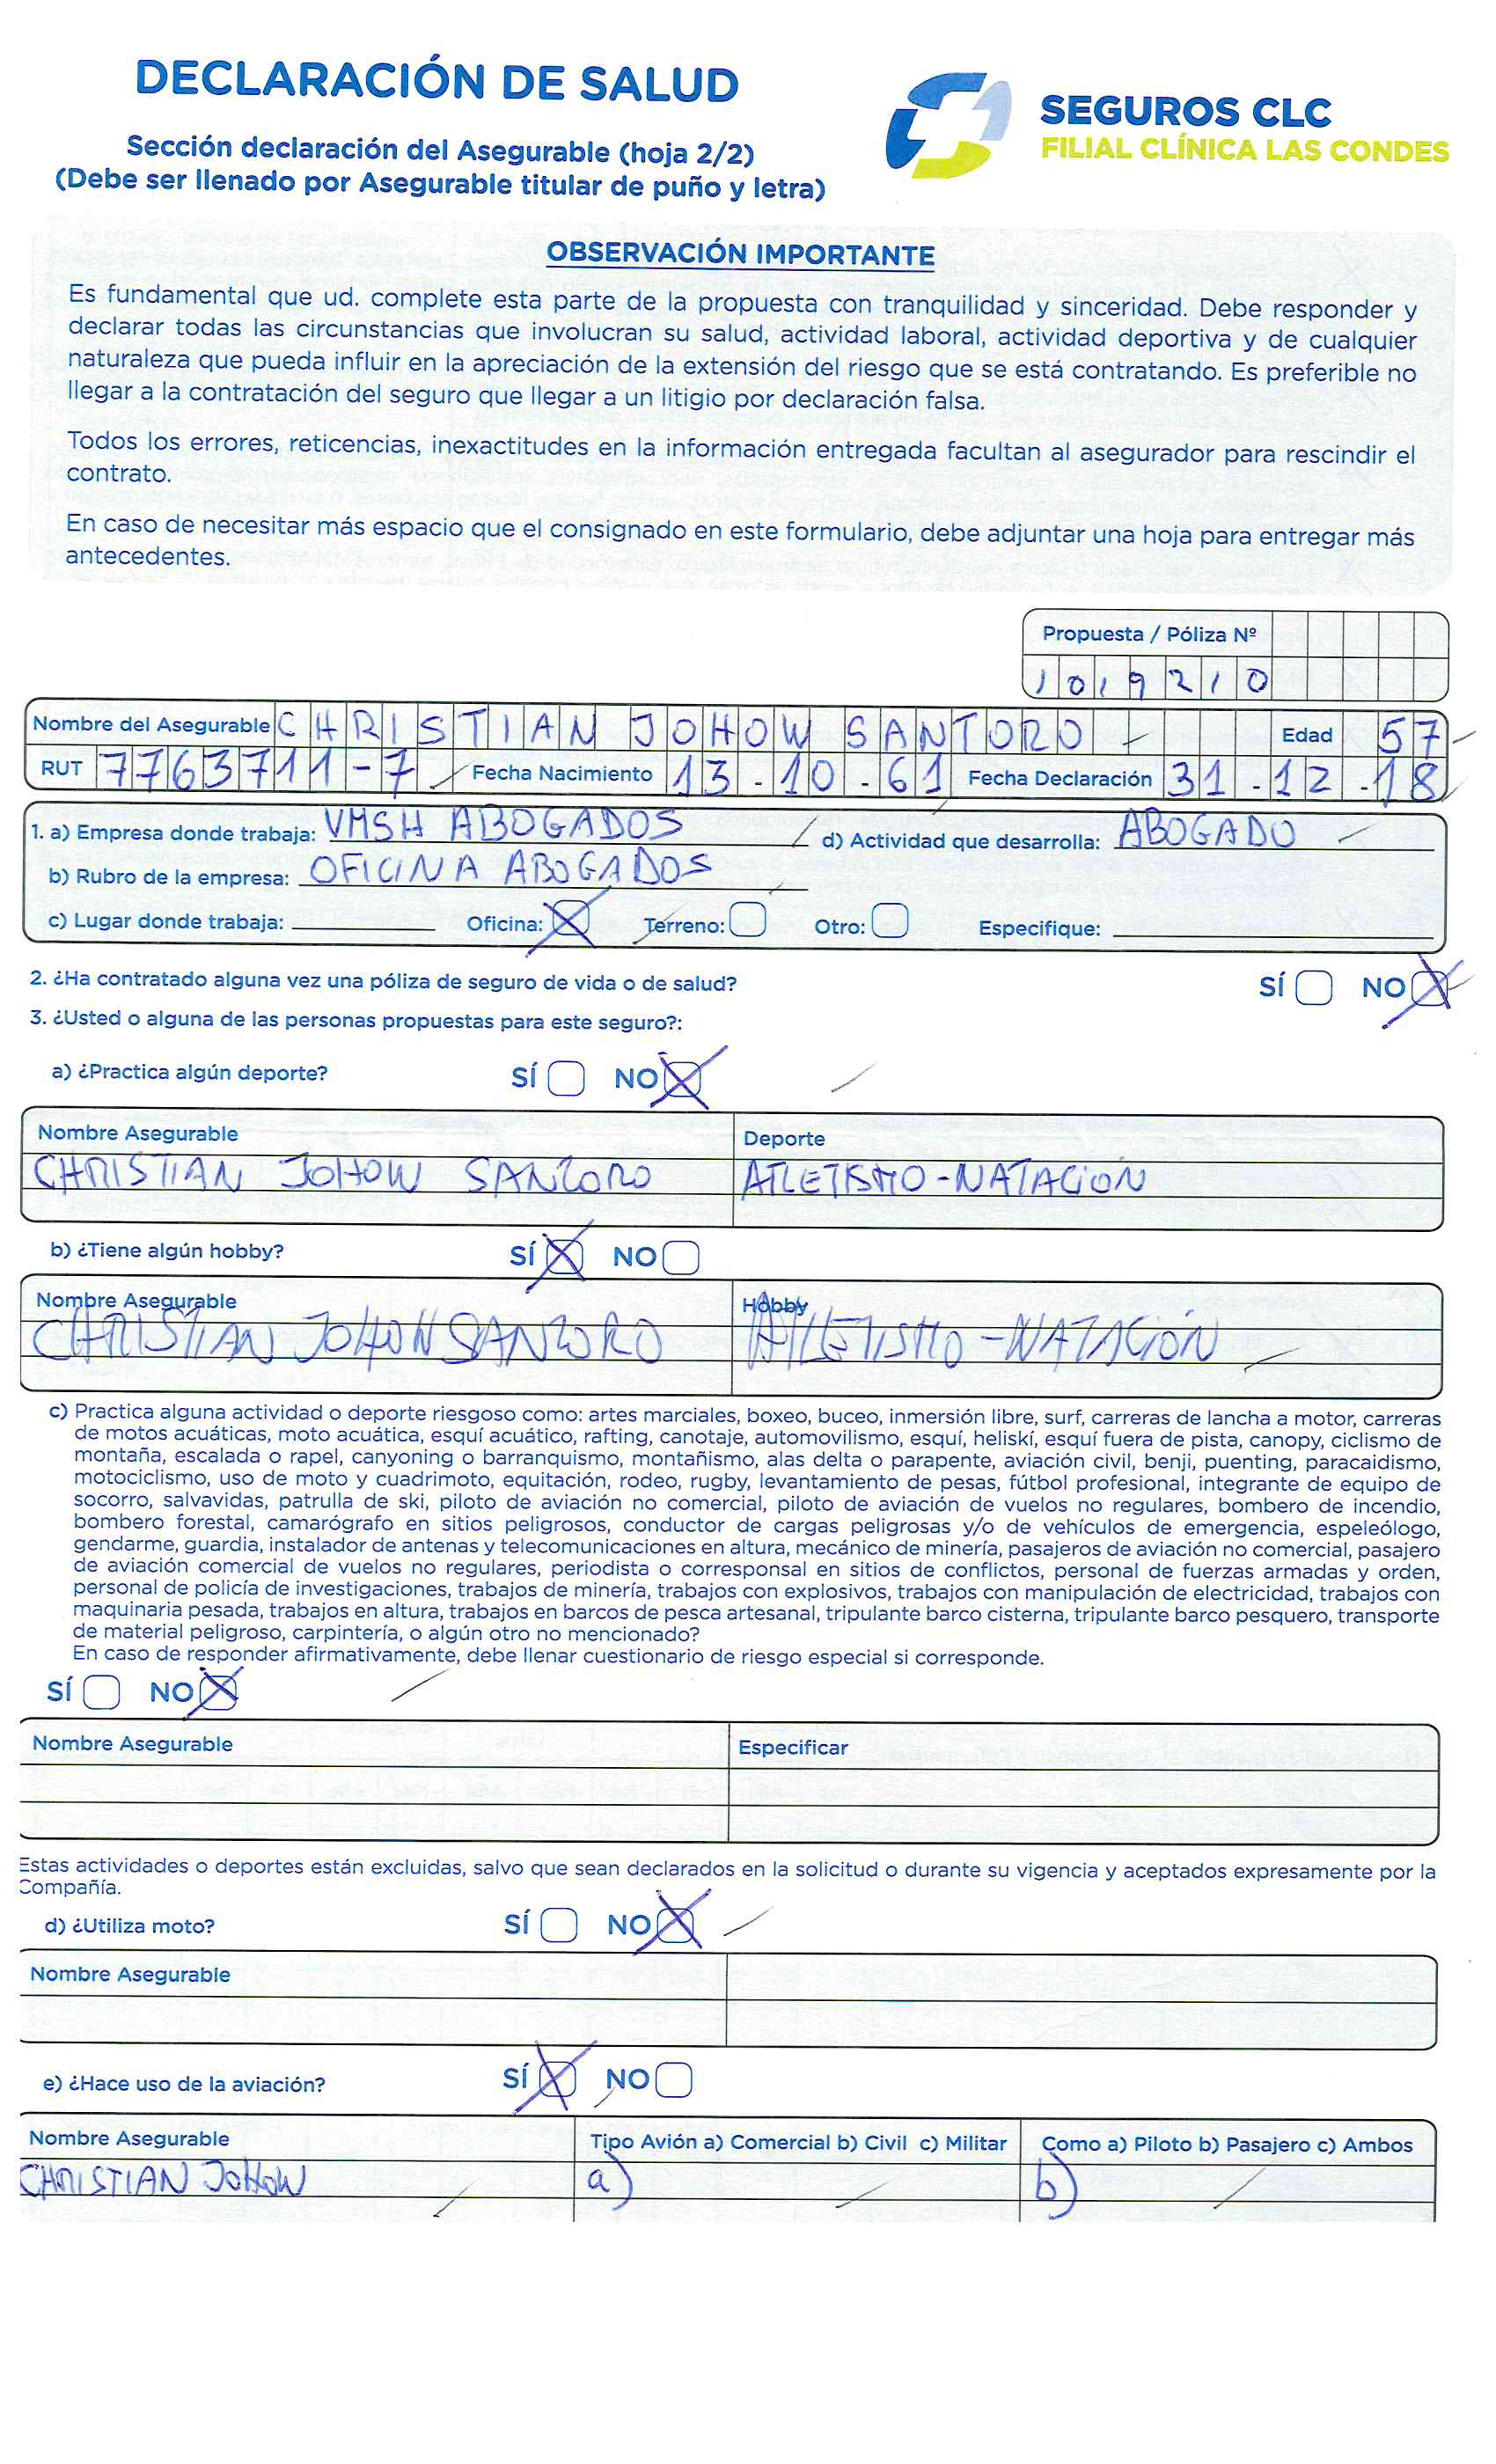 DECLARACIÓN DE SALUD
Sección declaración del Asegurable (hoja 2/2)
(Debe ser llenado por Asegurable titular de puño y letra)
SEGUROS CLC
FILIAL CLÍNICA LAS CONDES
OBSERVACIÓN IMPORTANTE
Es fundamental que ud. complete esta parte de la propuesta con tranquilidad y sinceridad. Debe responder y
declarar todas las circunstancias que involucran su salud, actividad laboral, actividad deportiva y de cualquier
naturaleza que pueda influir en la apreciación de la extensión del riesgo que se está contratando. Es preferible no
llegar a la contratación del seguro que llegar a un litigio por declaración falsa.
Todos los errores, reticencias, inexactitudes en la información entregada facultan al asegurador para rescindir el
contrato.
En caso de necesitar más espacio que el consignado en este formulario, debe adjuntar una hoja para entregar más
antecedentes.
Propuesta / Póliza Nº
1019210
Nombre del Asegurable CHRISTIAN JOHOW SANTORO Edad 57
RUT 7763711-7 Fecha Nacimiento 13.10.61 Fecha Declaración 31.12.18
1. a) Empresa donde trabaja: VMSH ABOGADOS d) Actividad que desarrolla: ABOGADO
b) Rubro de la empresa: OFICINA ABOGADOS
c) Lugar donde trabaja: Oficina: X Terreno: Otro: Especifique:
2. ¿Ha contratado alguna vez una póliza de seguro de vida o de salud? SÍ NO X
3. ¿Usted o alguna de las personas propuestas para este seguro?:
a) ¿Practica algún deporte? SÍ NO X
Nombre Asegurable Deporte
CHRISTIAN JOHOW SANTORO ATLETISMO-NATACIÓN
b) ¿Tiene algún hobby? SÍ X NO
Nombre Asegurable Hobby
CHRISTIAN JOHOW SANTORO ATLETISMO-NATACIÓN
c) Practica alguna actividad o deporte riesgoso como: artes marciales, boxeo, buceo, inmersión libre, surf, carreras de lancha a motor, carreras
de motos acuáticas, moto acuática, esquí acuático, rafting, canotaje, automovilismo, esquí, heliskí, esquí fuera de pista, canopy, ciclismo de
montaña, escalada o rapel, canyoning o barranquismo, montañismo, alas delta o parapente, aviación civil, benji, puenting, paracaidismo,
motociclismo, uso de moto y cuadrimoto, equitación, rodeo, rugby, levantamiento de pesas, fútbol profesional, integrante de equipo de
socorro, salvavidas, patrulla de ski, piloto de aviación no comercial, piloto de aviación de vuelos no regulares, bombero de incendio,
bombero forestal, camarógrafo en sitios peligrosos, conductor de cargas peligrosas y/o de vehículos de emergencia, espeleólogo,
gendarme, guardia, instalador de antenas y telecomunicaciones en altura, mecánico de minería, pasajeros de aviación no comercial, pasajero
de aviación comercial de vuelos no regulares, periodista o corresponsal en sitios de conflictos, personal de fuerzas armadas y orden,
personal de policía de investigaciones, trabajos de minería, trabajos con explosivos, trabajos con manipulación de electricidad, trabajos con
maquinaria pesada, trabajos en altura, trabajos en barcos de pesca artesanal, tripulante barco cisterna, tripulante barco pesquero, transporte
de material peligroso, carpintería, o algún otro no mencionado?
En caso de responder afirmativamente, debe llenar cuestionario de riesgo especial si corresponde.
SÍ NO X
Nombre Asegurable Especificar
Estas actividades o deportes están excluidas, salvo que sean declarados en la solicitud o durante su vigencia y aceptados expresamente por la
Compañía.
d) ¿Utiliza moto? SÍ NO X
Nombre Asegurable
e) ¿Hace uso de la aviación? SÍ X NO
Nombre Asegurable Tipo Avión a) Comercial b) Civil c) Militar Como a) Piloto b) Pasajero c) Ambos
CHRISTIAN JOHOW a) b)